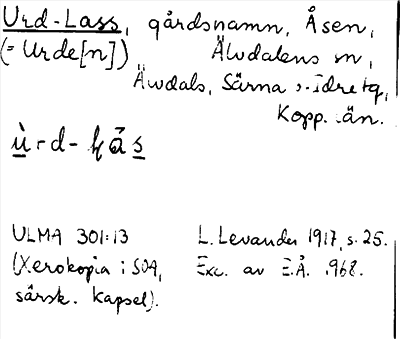 Urd-Lass, gårdsnamn, Åsen,
(= Urde[n]) Älvdalens sn,
Älvdals, Särna o. Idre tg,
Kopp. län.
ù-d-
ULMA 301:13 L. Levander 1917, s. 25.
(Xerokopia i SOA, Exc. av E.Å. 1968.
särsk. kapsel).